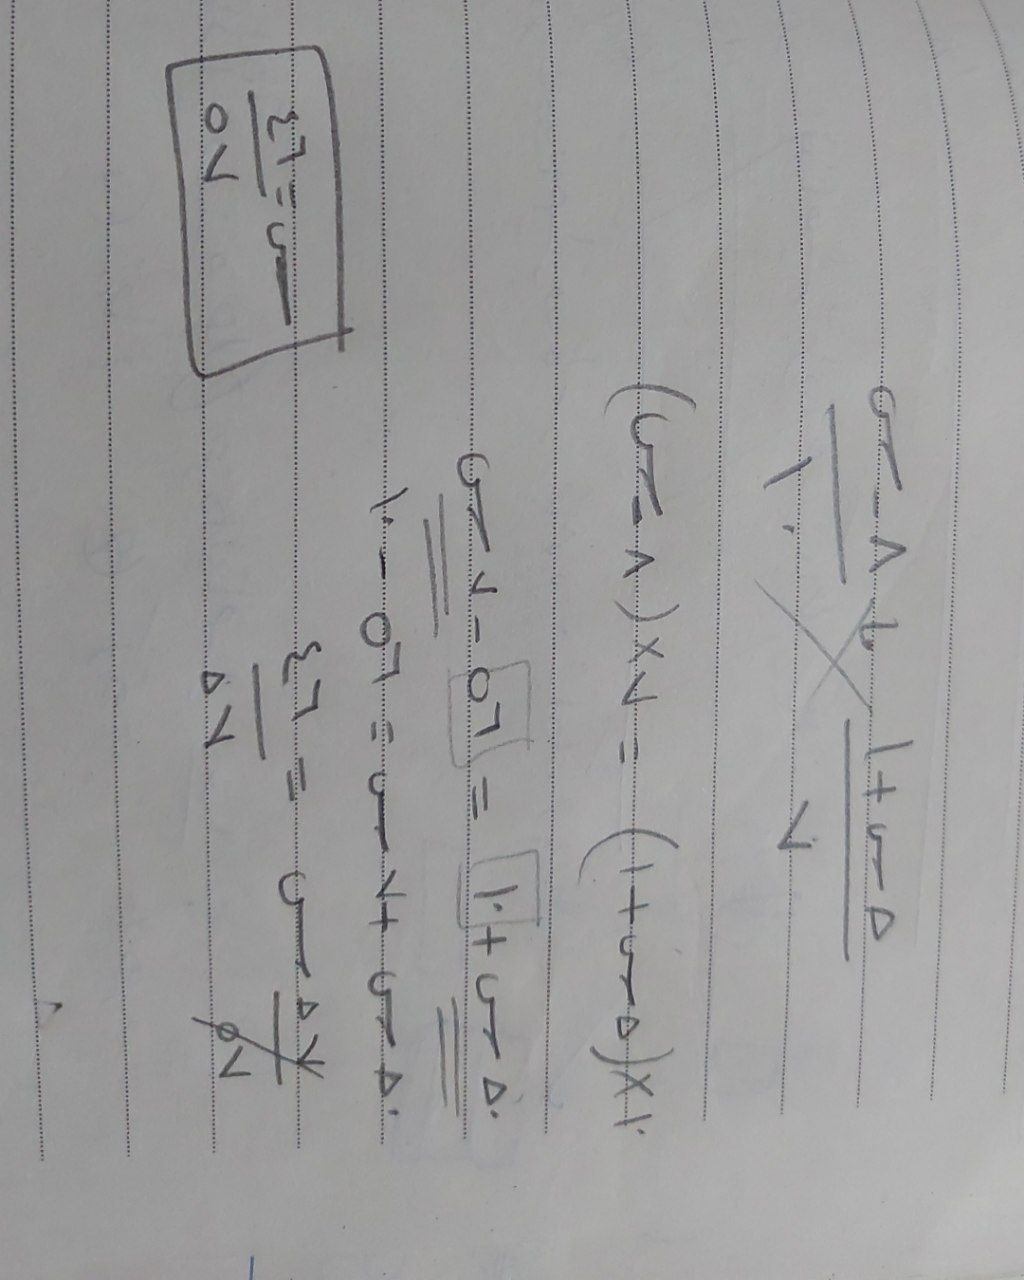 ٥س + ١ / ٧ = ٨ - س / ١٠
١٠ × (٥س + ١) = ٧ × (٨ - س)
٥٠س + ١٠ = ٥٦ - ٧س
٥٠س + ٧س = ٥٦ - ١٠
٥٧س / ٥٧ = ٤٦ / ٥٧
س = ٤٦ / ٥٧